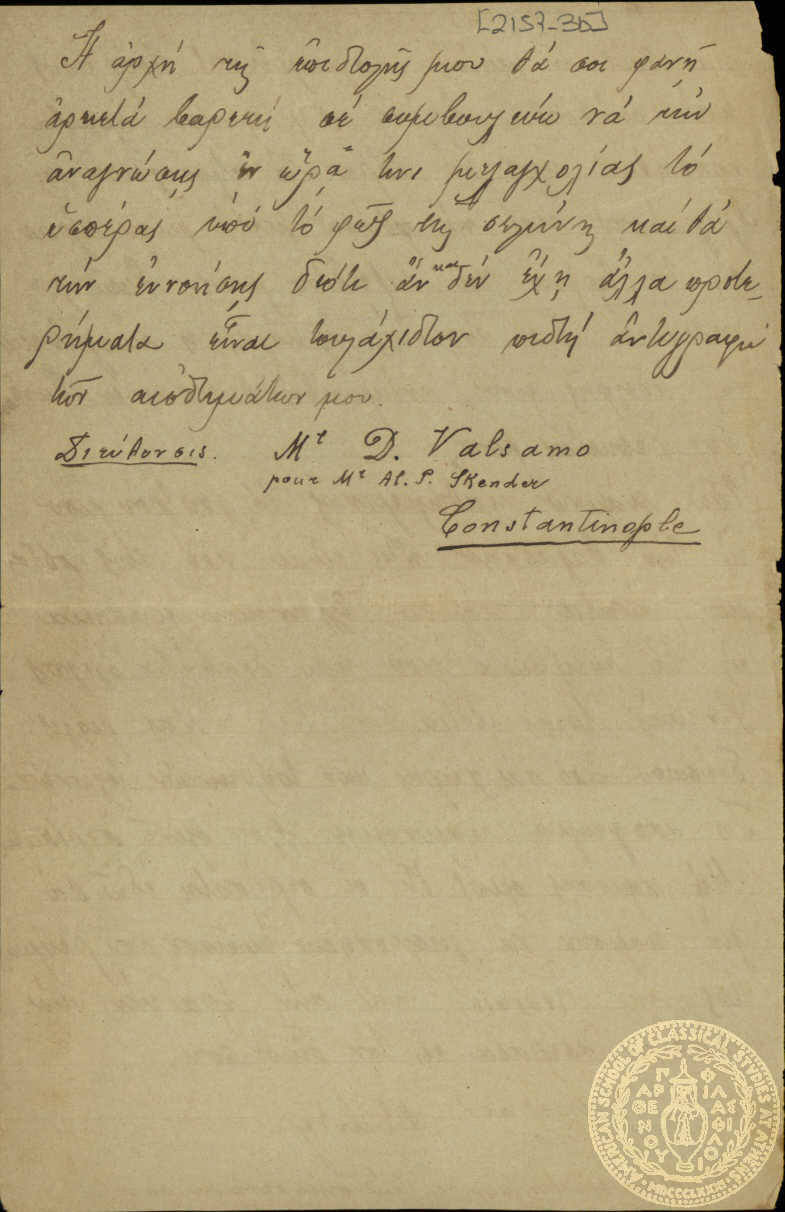 [2157-3b]
Ἡ ἀρχή τῆς ἐπιστολῆς μου θά σοι φανῇ
ἀρκετά βαρετή σέ συμβουλεύω νά τήν
ἀναγνώσῃς ἐν ὥρᾳ τινι μελαγχολίας τό
ἑσπέρας ὑπό τό φῶς τῆς σελήνης καί θά
τήν ἐννοήσῃς διότι ἄν και δέν ἔχῃ ἄλλα προτε-
ρήματα εἶναι τουλάχιστον πιστή ἀντιγραφή
τῶν αἰσθημάτων μου.
Διεύθυνσις. Mr D. Valsamo
pour Mr Al. P. Skender
Constantinople
AMERICAN SCHOOL OF CLASSICAL STUDIES AT ATHENS
ΠΑΡΘΕΝΟΥ ΦΙΛΑΣ ΦΙΛΟΙ
MDCCCLXXXI